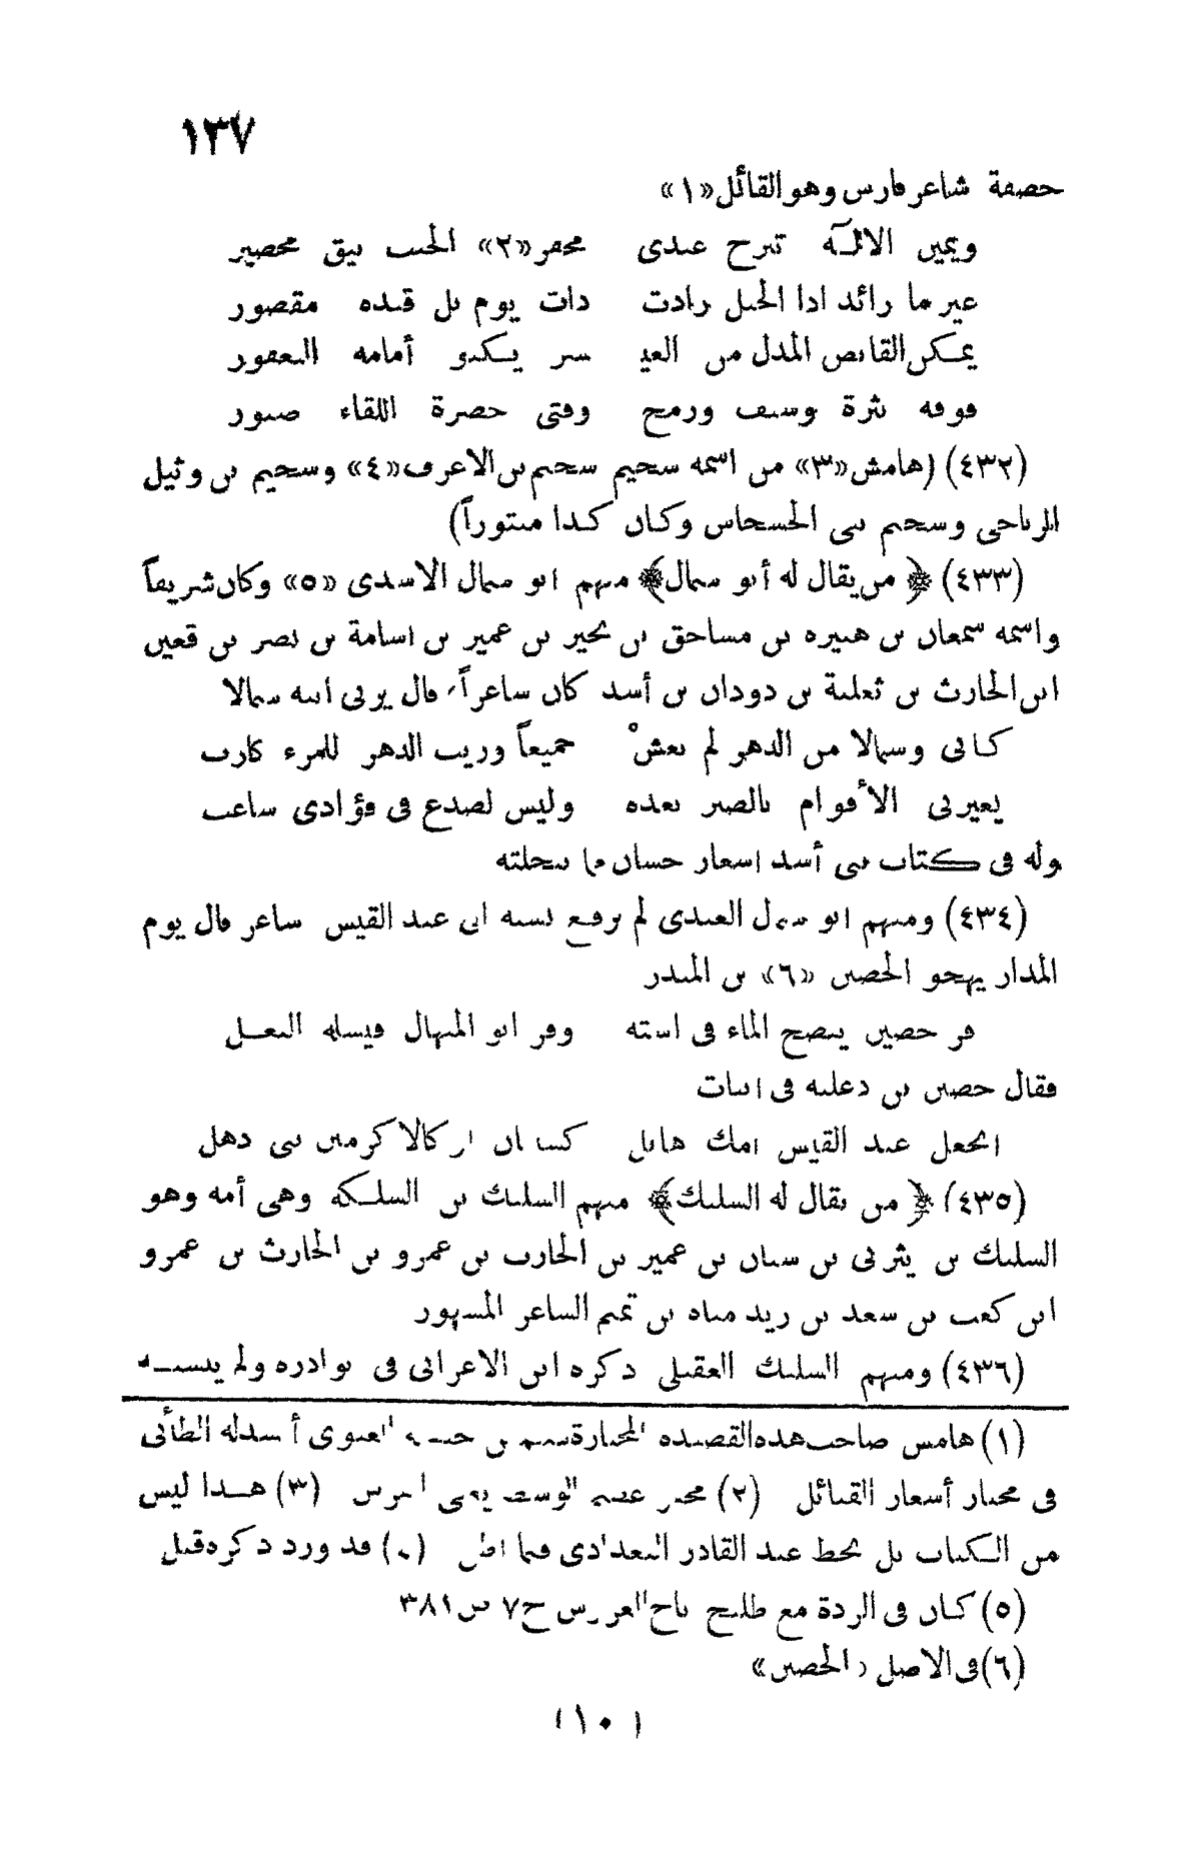 ١٣٧
حصفة شاعر فارس وهو القائل «١»
ويمين الالـه تبرح عندى محفر «٢» الجنب نيق محصير
غير ما رائد اذا الخيل رادت ذات يوم بل قيده مقصور
يمكن القانص المدل من العيـ ـر يكبو أمامه اليعفور
فوقه نثرة وسيف ورمح وفتى حضرة اللقاء صبور
(٤٣٢) (هامش «٣» من اسمه سحيم سحيم بن الاعرف «٤» وسحيم بن وثيل
الرياحى وسحيم بنى الحسحاس وكان كذا مبتوراً)
(٤٣٣) ﴿ من يقال له أبو سمال ﴾ منهم ابو سمال الاسدى «٥» وكان شريفاً
واسمه سمعان بن هبيرة بن مساحق بن بحير بن عمير بن اسامة بن نصر بن قعين
ابن الحارث بن ثعلبة بن دودان بن أسد كان شاعراً، قال يرثى ابنه سمالا
كأنى وسمالا من الدهر لم نعشْ جميعاً وريب الدهر للمرء كارب
يعيرنى الأقوام بالصبر بعده وليس لصدع فى فؤادى شاعب
وله فى كتاب بنى أسد اشعار حسان مما نتخلته
(٤٣٤) ومنهم ابو سمال العبدى لم يرفع نسبه الى عبد القيس شاعر قال يوم
المذار يهجو الحصين «٦» بن المنذر
فر حصين ينضح الماء فى استه وفر ابو المنهال فيشله البغـل
فقال حصين بن دعلبه فى ابيات
اتجعل عبد القيس امك هابل كشيبان او كالاكرمين بنى ذهل
(٤٣٥) ﴿ من يقال له السليك ﴾ منهم السليك بن السلـكه وهى أمه وهو
السليك بن يثربى بن سنان بن عمير بن الحارث بن عمرو بن الحارث بن عمرو
ابن كعب بن سعد بن زيد مناه بن تميم الشاعر المشهور
(٤٣٦) ومنهم السليك العقيلى ذكره ابن الاعرابى فى نوادره ولم ينسبـه
(١) هامش صاحب هذه القصيدة المختارة أنشد له الطائى
فى مختار أشعار القبائل (٢) محفر عظيم الوسط يعنى الفرس (٣) هـذا ليس
من الـكتاب بل بخط عبد القادر البغدادى فيما اظن قد ورد ذكره قبل
(٥) كـان فى الردة مع طليح تاج العروس ج٧ ص٣٨١
(٦) فى الاصل «الحصين»
(١٠)